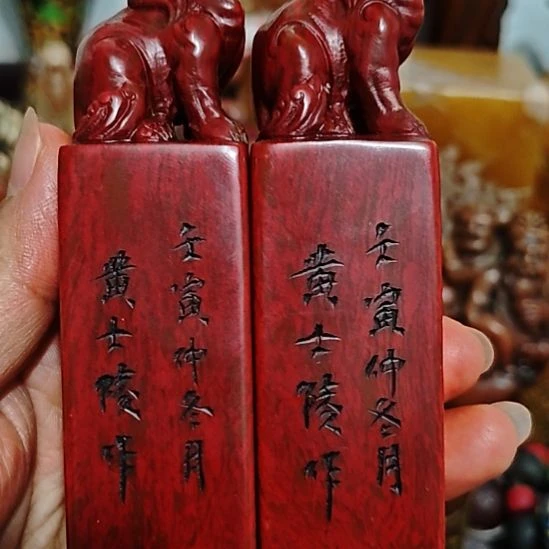 壬寅仲冬月
黄士陵作
壬寅仲冬月
黄士陵作